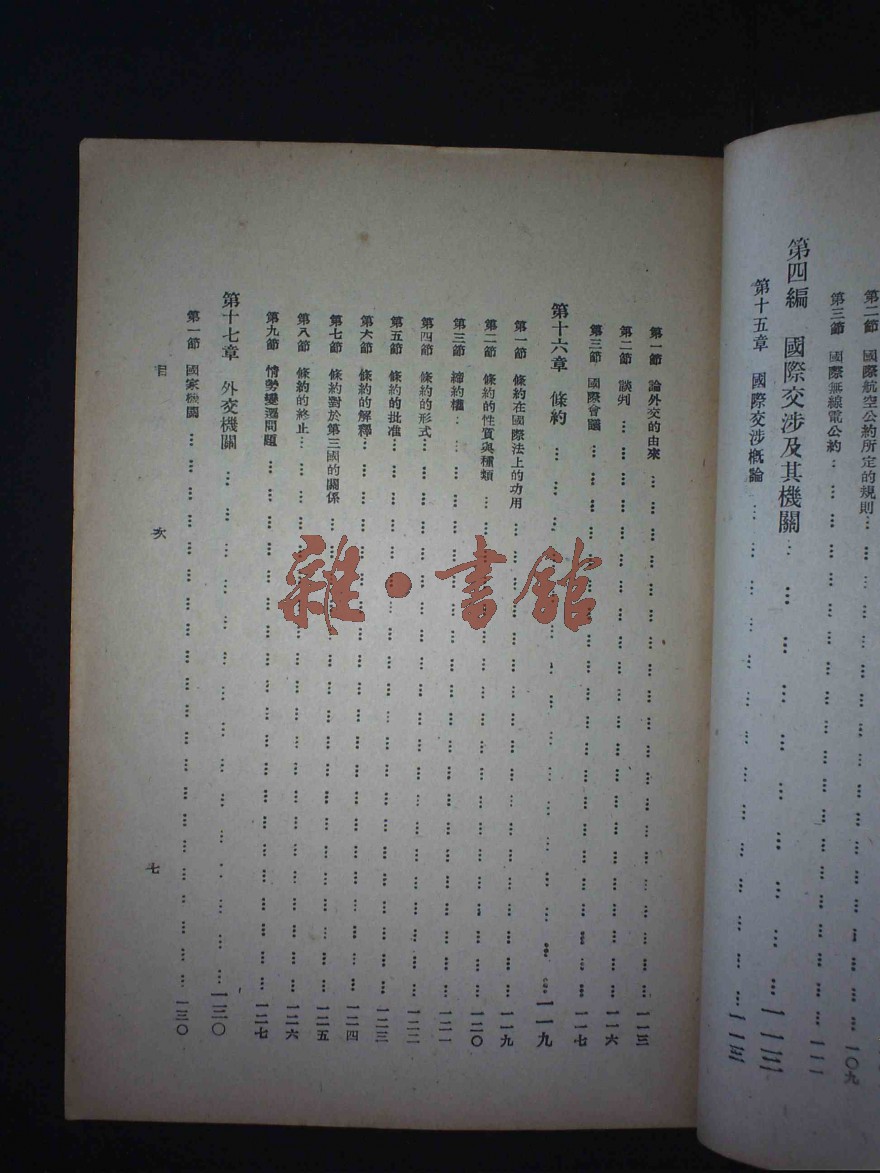 第二節　國際航空公約所定的規則… … … 一〇九
第三節　國際無線電公約… … … 一一一
第四編　國際交涉及其機關… … … 一一三
第十五章　國際交涉概論… … … 一一三
第一節　論外交的由來… … … 一一三
第二節　談判… … … 一一六
第三節　國際會議… … … 一一七
第十六章　條約… … … 一一九
第一節　條約在國際法上的功用… … … 一一九
第二節　條約的性質與種類… … … 一二〇
第三節　締約權… … … 一二一
第四節　條約的形式… … … 一二二
第五節　條約的批准… … … 一二三
第六節　條約的解釋… … … 一二四
第七節　條約對於第三國的關係… … … 一二五
第八節　條約的終止… … … 一二六
第九節　情勢變遷問題… … … 一二七
第十七章　外交機關… … … 一三〇
第一節　國家機關… … … 一三〇
目　次　七
雜·書館